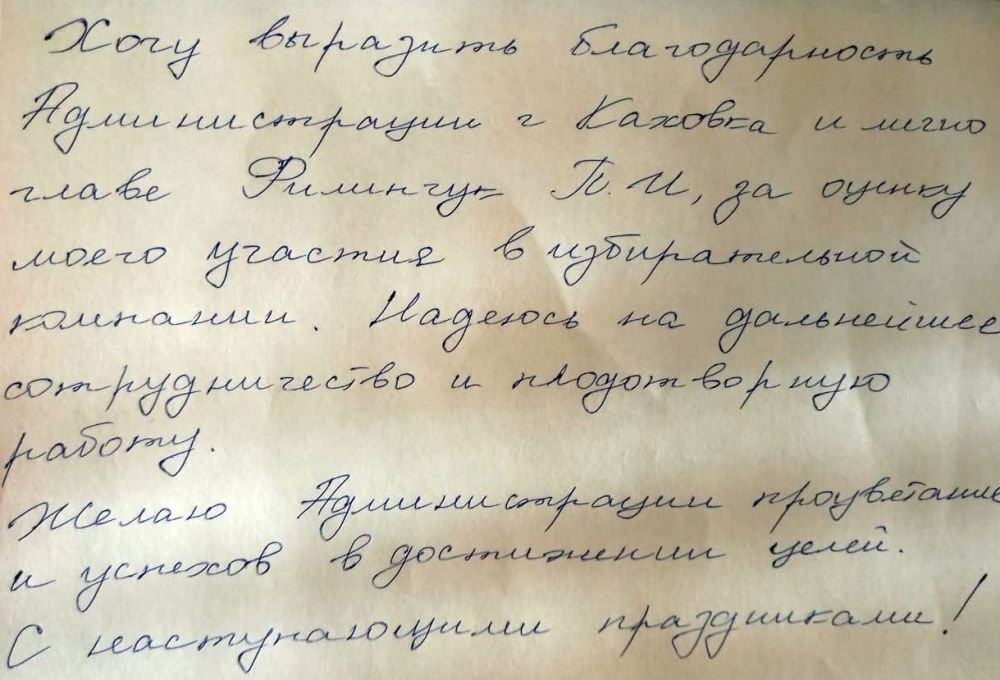 Хочу выразить благодарность
Администрации г Каховка и лично
главе Филипчук П.И, за оценку
моего участия в избирательной
компании. Надеюсь на дальнейшее
сотрудничество и плодотворную
работу.
Желаю Администрации процветание
и успехов в достижении целей.
С наступающими праздниками!